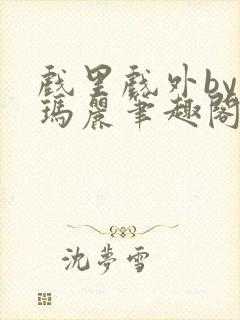 戲里戲外by
瑪麗筆趣閣
沈夢雪